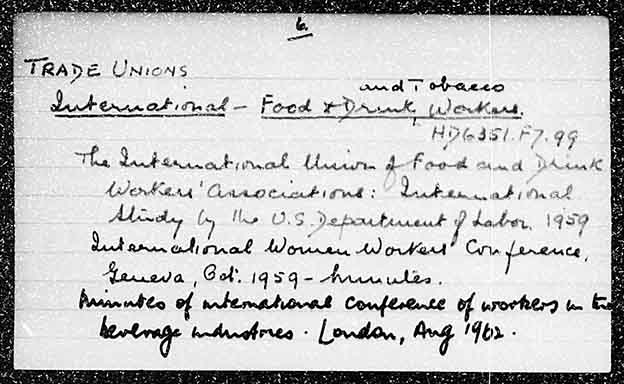 6.
TRADE UNIONS
and Tobacco
International – Food & Drink, Workers.
HD6351.F7.99
The International Union of Food and Drink
Workers' Associations: International
Study by the U.S Department of Labor. 1959
International Women Workers' Conference,
Geneva, Oct. 1959 – Minutes.
Minutes of international conference of workers in the
beverage industries. London, Aug 1962.